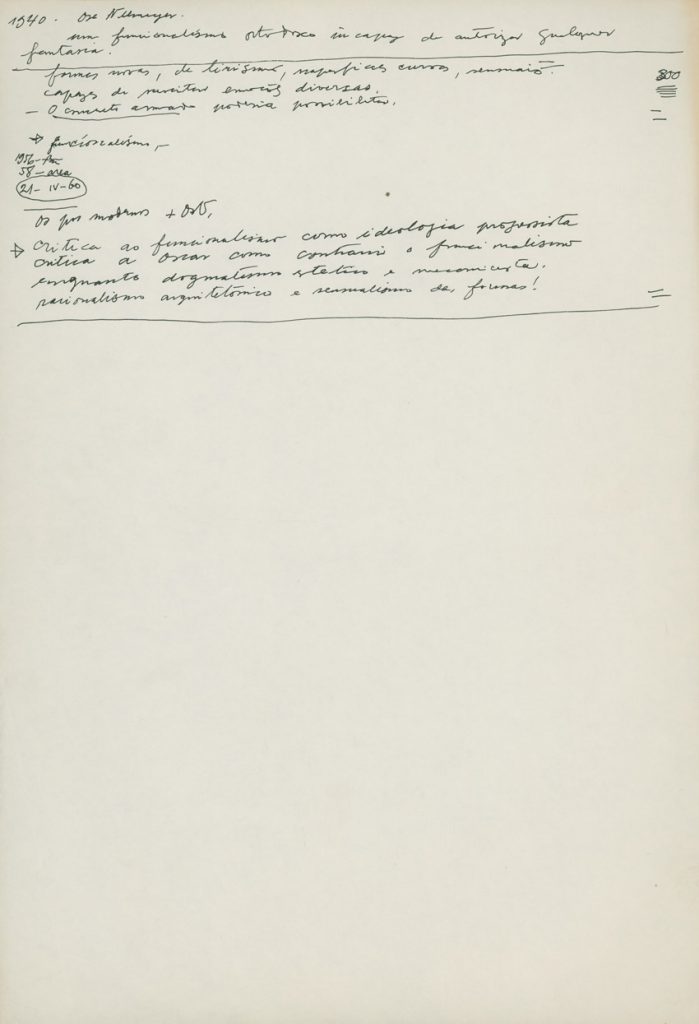 1940. Osc Niemeyer.
um funcionalismo ortodoxo incapaz de autorizar qualquer
fantasia.
formas novas, de lirismo, superfícies curvas, sensuais.
800
capazes de suscitar emoções diversas.
- O concreto armado poderia possibilitar.
→ funcionalismo, -
1956
58 -
21-IV-60
Os pos modernos +
→ Critica ao funcionalismo como ideologia progressista
critica a Oscar como contrario o funcionalismo
enquanto dogmatismo estético e mecanicista.
racionalismo arquitetônico e sensualismo das formas!